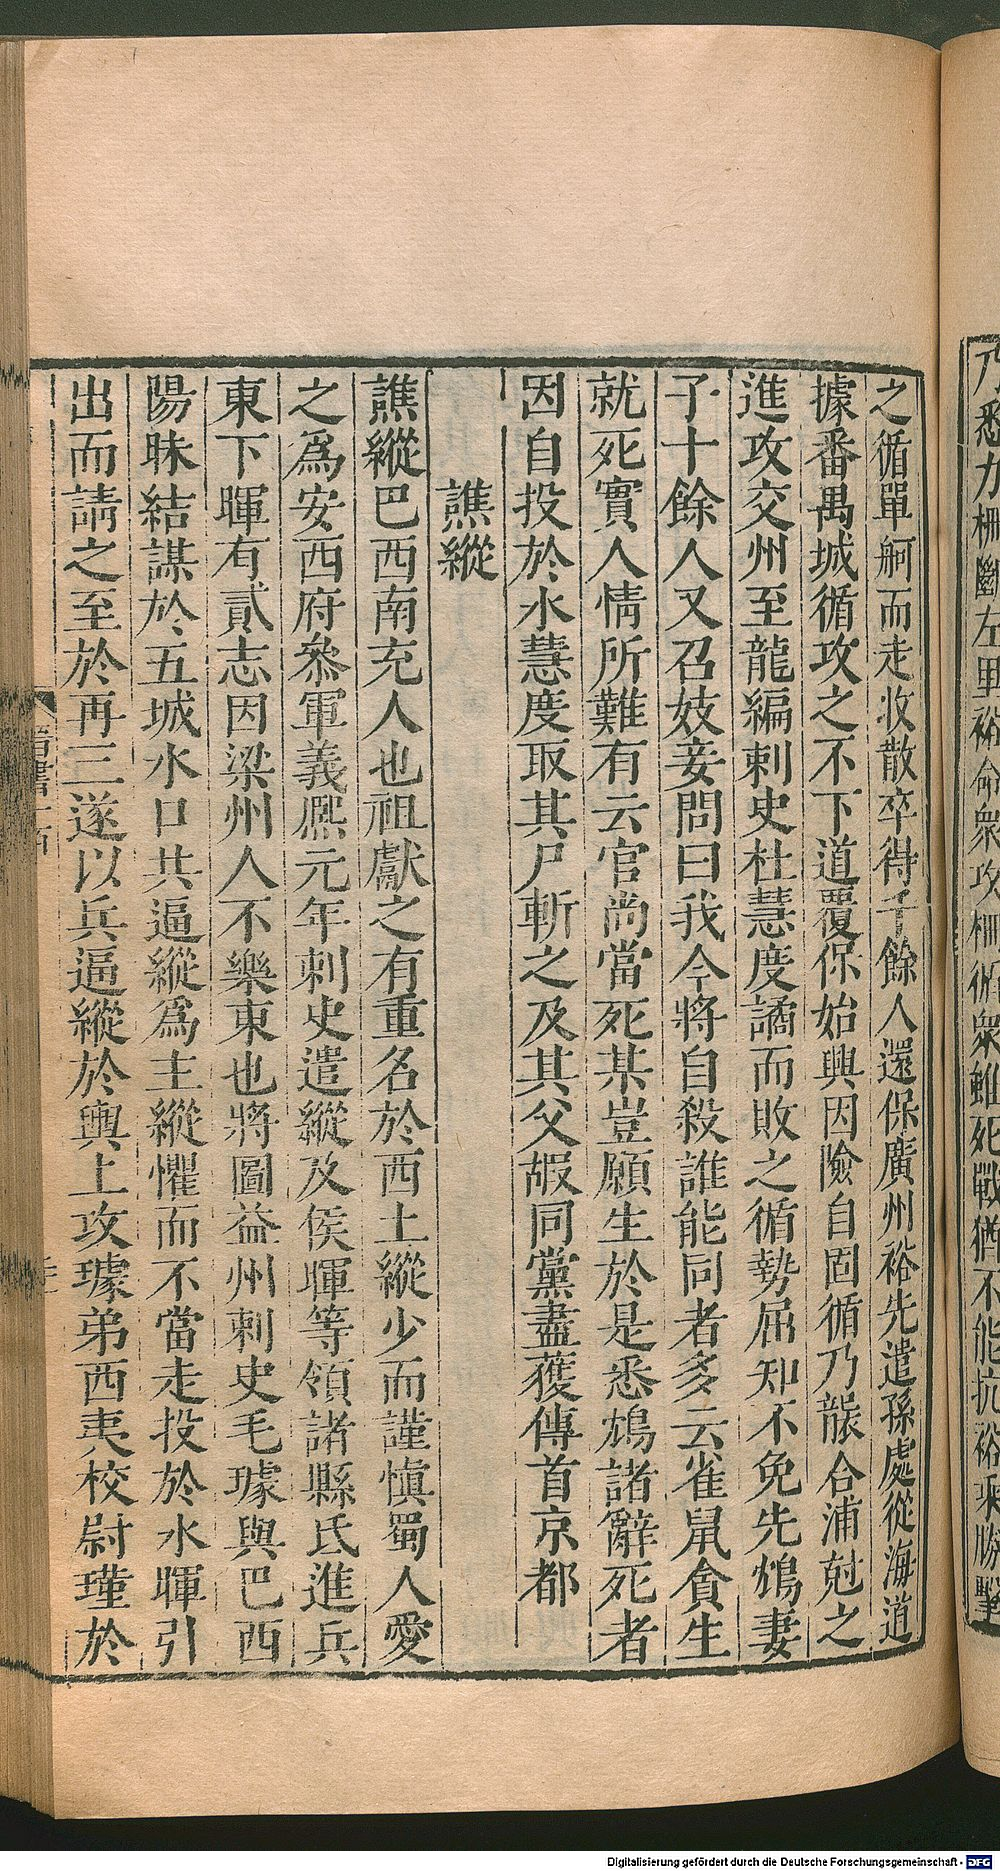 乃悉力柵斷左里裕命衆攻柵循衆雖死戰猶不能抗裕乘勝擊
之循單舸而走收散卒得千餘人還保廣州裕先遣孫處從海道
據番禺城循攻之不下道覆保始興因險自固循乃襲合浦尅之
進攻交州至龍編刺史杜慧度譎而敗之循勢屈知不免先鴆妻
子十餘人又召妓妾問曰我今將自殺誰能同者多云雀鼠貪生
就死實人情所難有云官尚當死某豈願生於是悉鴆諸辭死者
因自投於水慧度取其尸斬之及其父嘏同黨盡獲傳首京都
譙縱
譙縱巴西南充人也祖獻之有重名於西土縱少而謹愼蜀人愛
之爲安西府叅軍義熈元年刺史遣縱及侯暉等領諸縣氐進兵
東下暉有貳志因梁州人不樂東也將圖益州刺史毛璩與巴西
陽昧結謀於五城水口共逼縱爲主縱懼而不當走投於水暉引
出而請之至於再三遂以兵逼縱於輿上攻璩弟西夷校尉瑾於
晉書一百
Digitalisierung gefördert durch die Deutsche Forschungsgemeinschaft - DFG